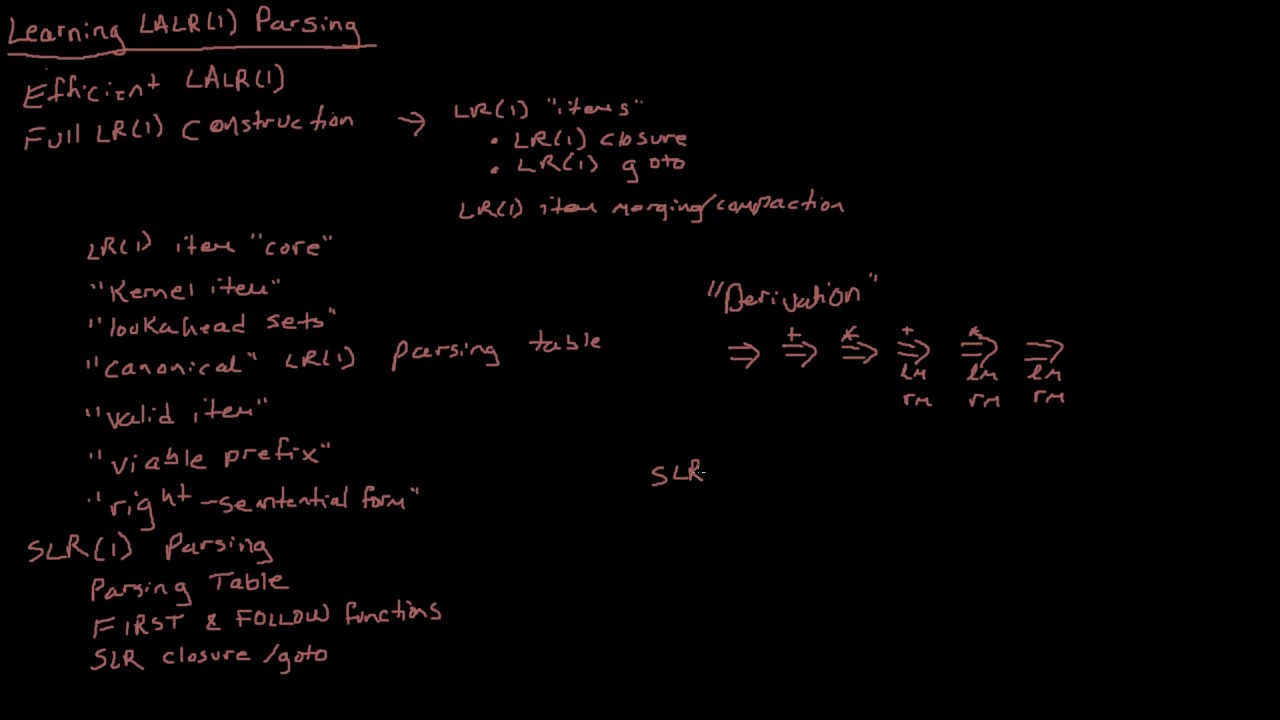 Learning LALR(1) Parsing
Efficient LALR(1)
Full LR(1) Construction → LR(1) "items"
• LR(1) closure
• LR(1) goto
LR(1) item merging/compaction
LR(1) item "core"
"Kernel item"
"lookahead sets"
"Canonical" LR(1) parsing table
"valid item"
"viable prefix"
"right-sentential form"
"Derivation"
⇒ ⇒+ ⇒* ⇒+ ⇒* ⇒
lm lm lm
rm rm rm
SLR
SLR(1) Parsing
Parsing Table
FIRST & FOLLOW functions
SLR closure/goto